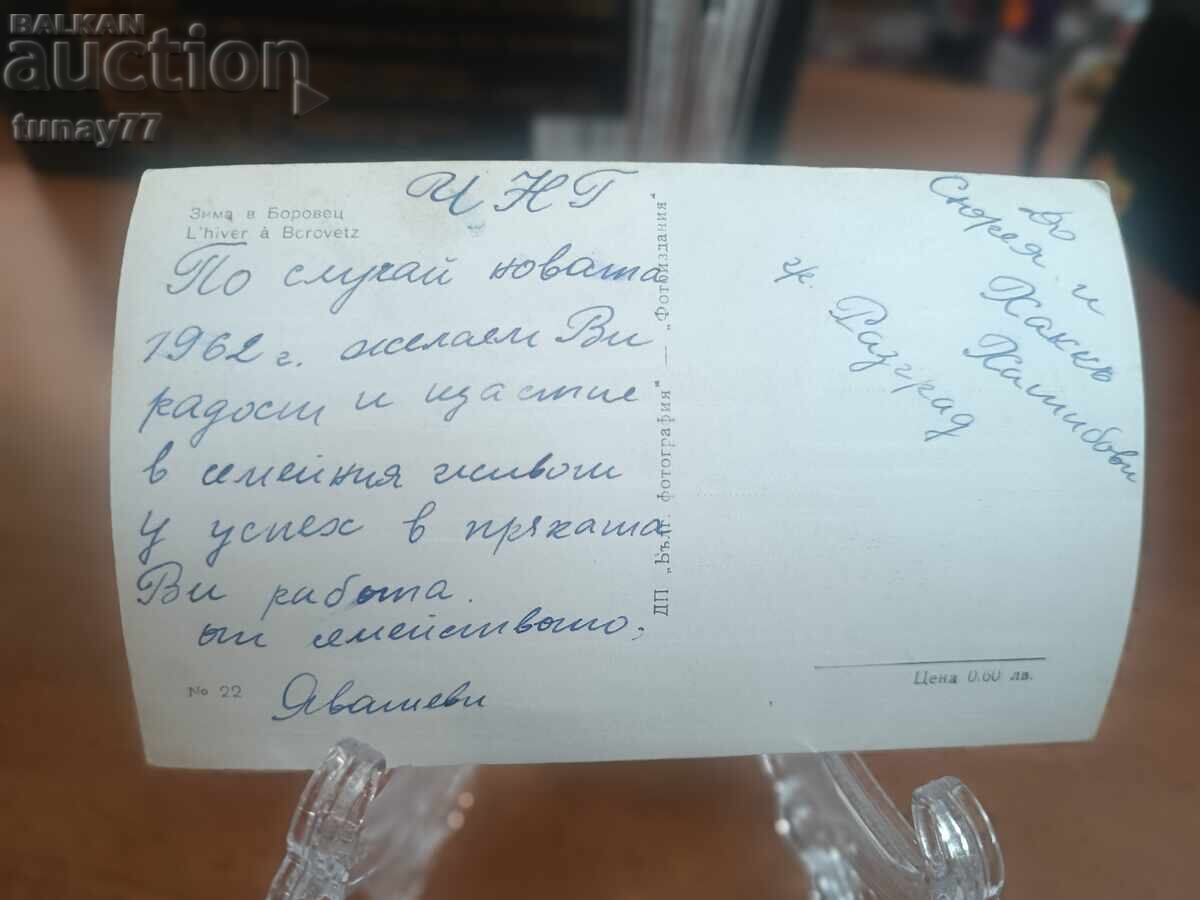 BALKAN
auction
tunay77
Зима в Боровец
L'hiver à Borovetz
ЧНГ
По случай новата
1962 г. желаем Ви
радост и щастие
в семейния живот
и успех в пряката
Ви работа.
от семейството;
Явашеви
№ 22
ДП „Бълг. фотография" — „Фотоиздания"
До
Сюрея и
Хаккъ
Хатибови
гр.
Разград
Цена 0.60 лв.